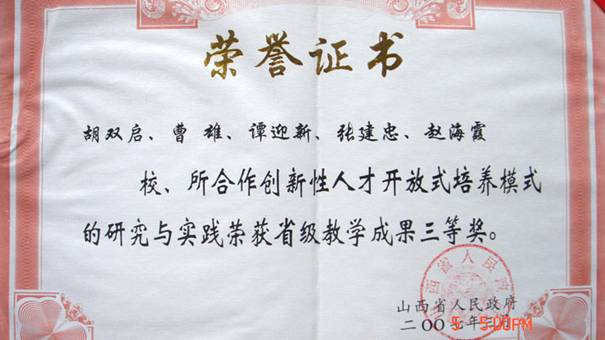 荣誉证书
胡双启、曹 雄、谭迎新、张建忠、赵海霞
校、所合作创新性人才开放式培养模式
的研究与实践荣获省级教学成果三等奖。
山西省人民政府
二〇〇七年
5 5:00PM